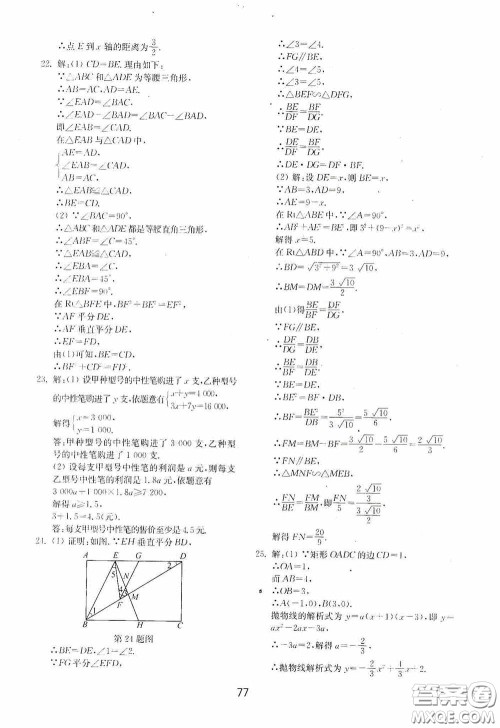 ∴点 E 到 x 轴的距离为 3/2.
22. 解:(1) CD=BE. 理由如下:
∵△ABC 和△ADE 为等腰三角形,
∴AB=AC, AD=AE,
∵∠EAD=∠BAC,
∴∠EAD-∠BAD=∠BAC-∠BAD,
即∠EAB=∠CAD.
在△EAB 与△CAD 中,
AE=AD,
∠EAB=∠CAD,
AB=AC,
∴△EAB≌△CAD,
∴BE=CD.
(2) ∵∠BAC=90°,
∴△ABC 和△ADE 都是等腰直角三角形,
∴∠ABF=∠C=45°.
∵△EAB≌△CAD,
∴∠EBA=∠C.
∴∠EBA=45°,
∴∠EBF=90°.
在 Rt△BFE 中, BF²+BE²=EF².
∵AF 平分 DE,
∴AF 垂直平分 DE,
∴EF=FD,
由(1)可知, BE=CD,
∴BF²+CD²=FD².
23. 解:(1) 设甲种型号的中性笔购进了 x 支,乙种型号
的中性笔购进了 y 支,依题意有{x+y=4 000, 3x+7y=16 000,
解得{x=3 000, y=1 000.
答:甲种型号的中性笔购进了 3 000 支,乙种型
号的中性笔购进了 1 000 支.
(2) 设每支甲型号中性笔的利润是 a 元,则每支
乙型号中性笔的利润是 1.8a 元,依题意有
3 000a+1 000×1.8a≥7 200,
解得 a≥1.5,
3+1.5=4.5(元).
答:每支甲型号中性笔的售价至少是 4.5 元.
24. (1) 证明:如图. ∵EH 垂直平分 BD,
A E G D
5 2
4
F M
1
B H C
第 24 题图
∴BE=DE, ∠1=∠2.
∵FG 平分∠EFD,
∴∠3=∠4.
∵FG∥BE,
∴∠4=∠5,
∴∠3=∠5,
∴△BEF∽△DFG,
∴BE/DF=BF/DG.
∵BE=DE,
∴DE/DF=BF/DG,
∴DE·DG=DF·BF.
(2) 解:设 DE=x,则 BE=x.
∵AB=3, AD=9,
∴AE=9-x.
在 Rt△ABE 中, ∵∠A=90°,
∴AB²+AE²=BE²,即 3²+(9-x)²=x²,
解得 x=5.
在 Rt△ABD 中, ∵∠A=90°, AB=3, AD=9,
∴BD=√(3²+9²)=3√10,
∴BM=DM=3√10/2.
由(1)得 BE/BF=DF/DG.
∵FG∥BE,
∴DF/DG=DB/DE,
∴BE/BF=DB/DE,
∴BE²=BF·DB,
∴BF=BE²/DB=5²/3√10=5√10/6,
∴FM=BM-BF=3√10/2-5√10/6=2√10/3.
∵FN∥BE,
∴△MNF∽△MEB,
∴FN/BE=FM/BM,即 FN/5=(2√10/3)/(3√10/2),
解得 FN=20/9.
25. 解:(1) ∵矩形 OADC 的边 CD=1,
∴OA=1,
而 AB=4,
∴OB=3,
∴A(-1,0), B(3,0).
抛物线的解析式为 y=a(x+1)(x-3),即 y=
ax²-2ax-3a,
∴-3a=2,解得 a=-2/3,
∴抛物线解析式为 y=-2/3x²+4/3x+2.
77
答案圈
MXQE.COM